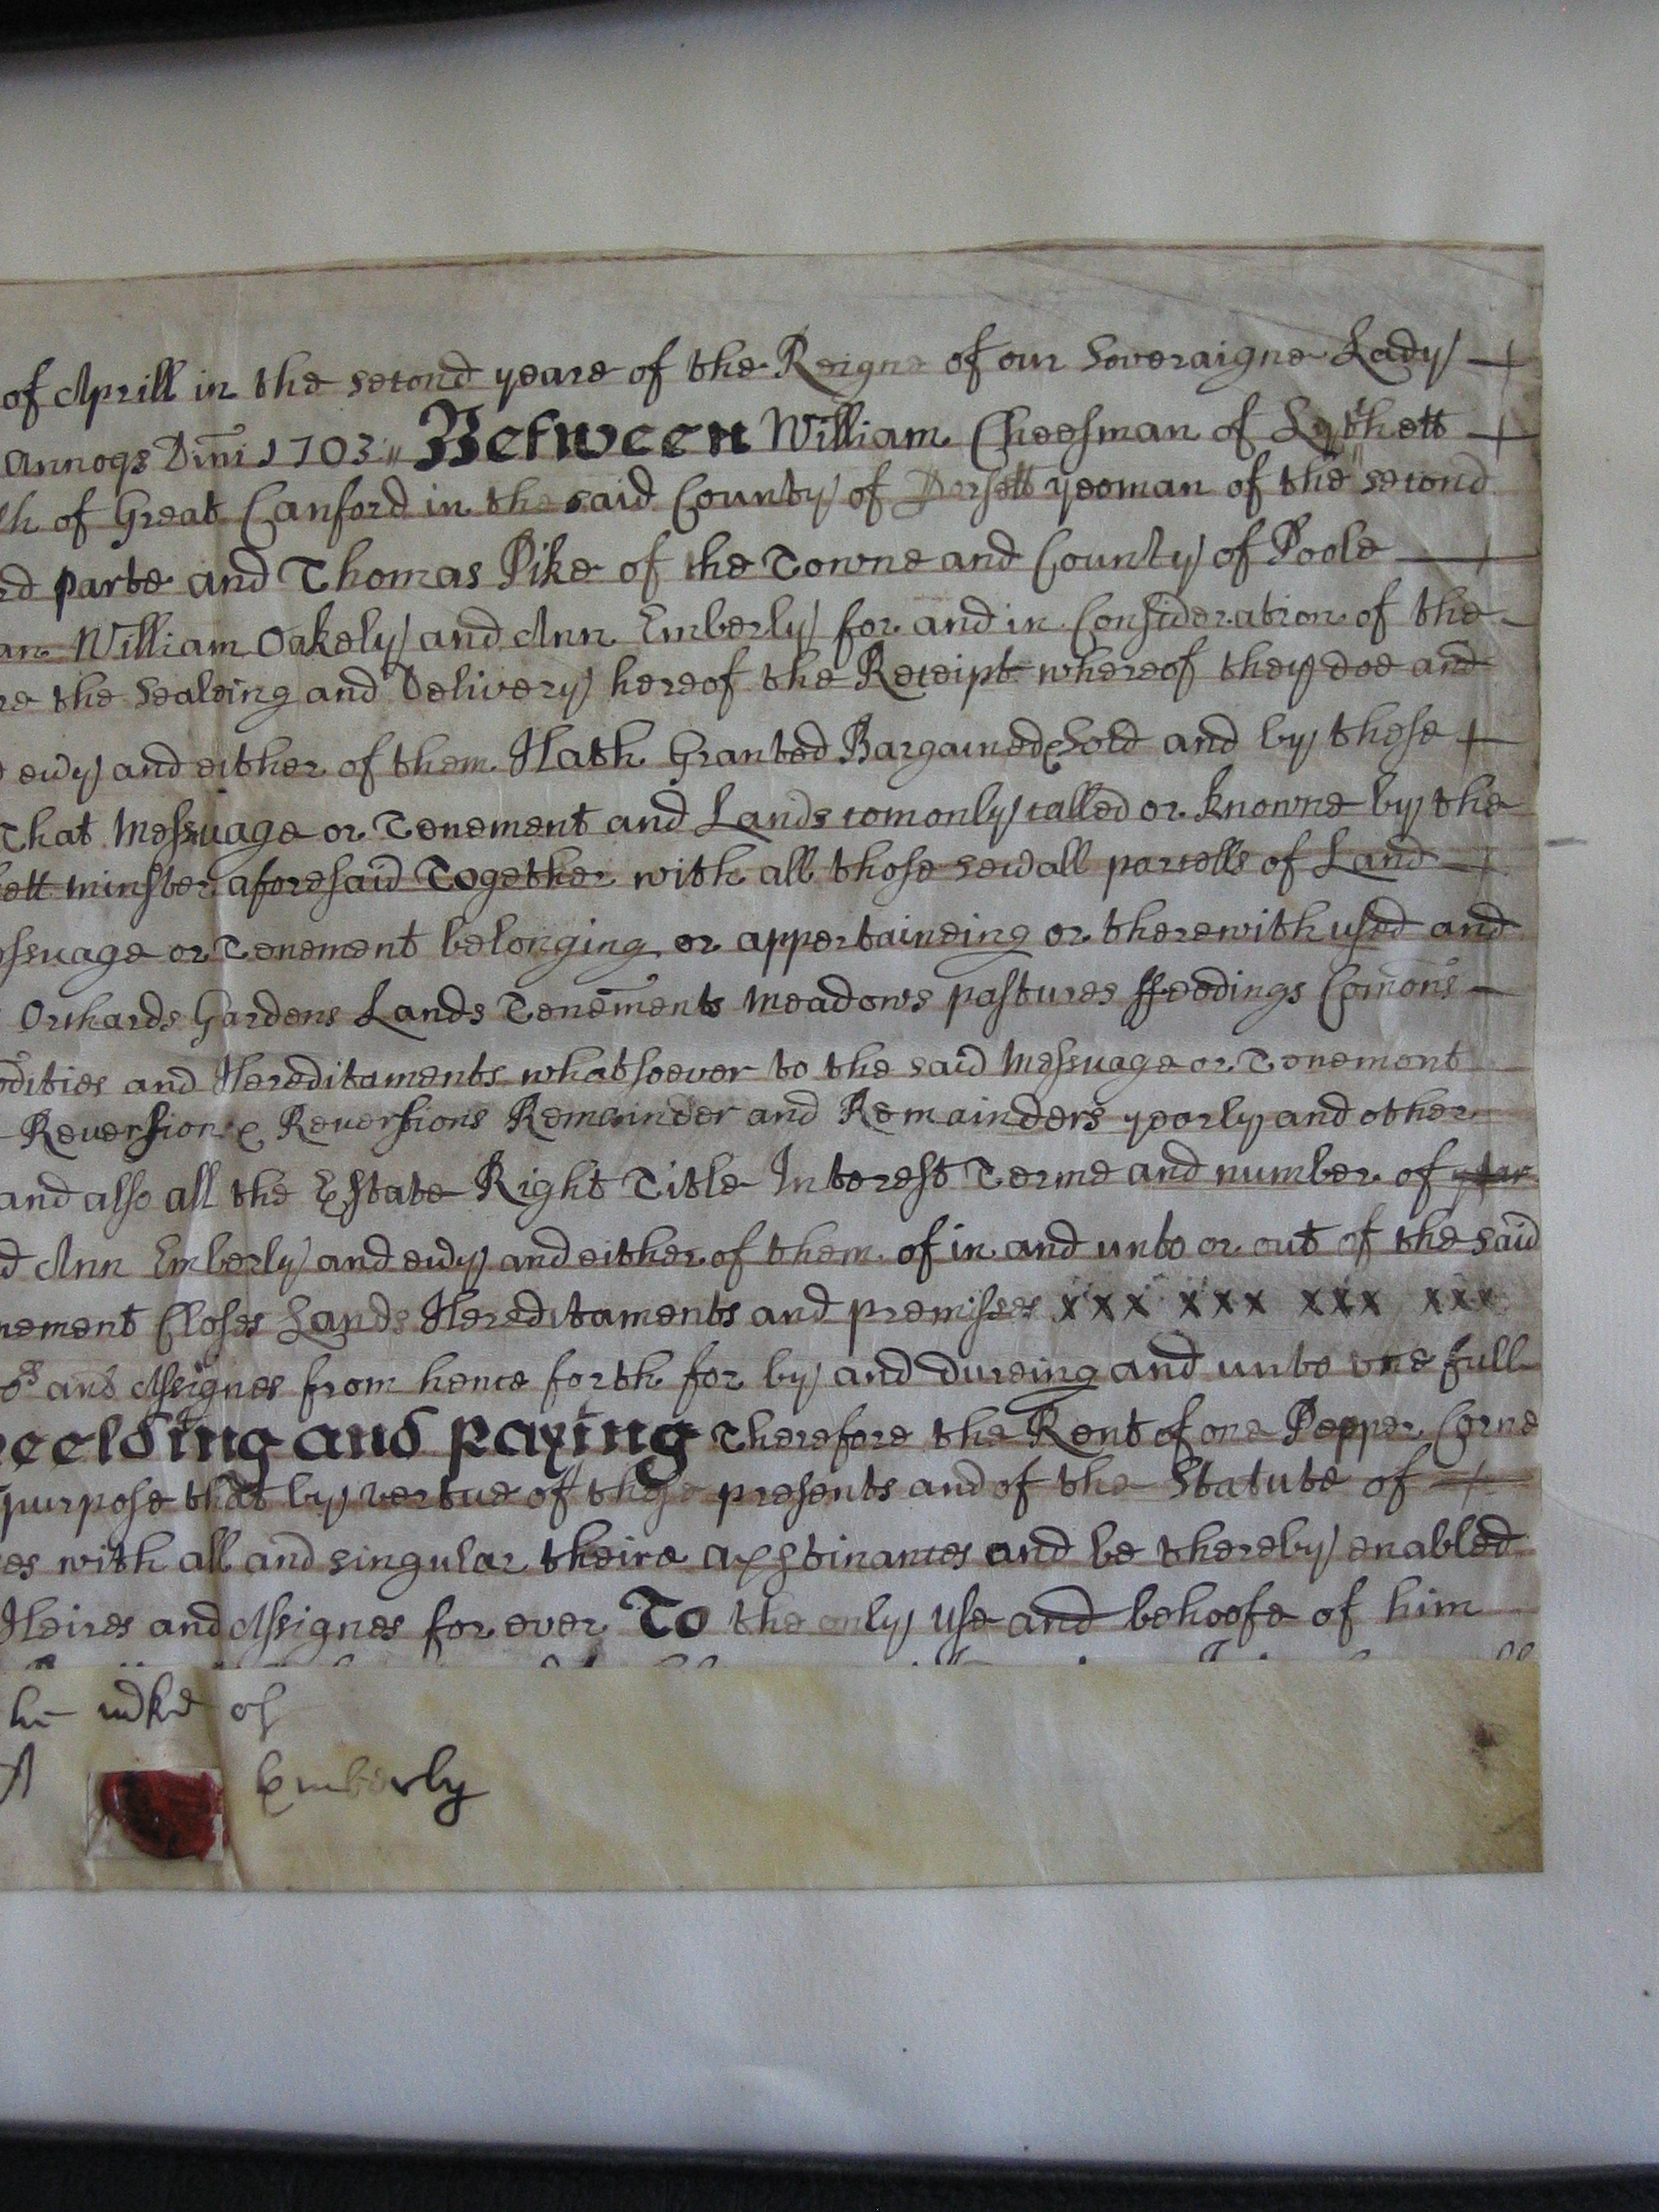 of Aprill in the second yeare of the Reigne of our Soveraigne Lady
Annoqs Dm̄i 1703 Between William Cheesman of Lytchett
of Great Canford in the said County of Dorsett yeoman of the second
parte and Thomas Pike of the Towne and County of Poole
William Oakely and Ann Emberly for and in Consideration of the
the Sealeing and Delivery hereof the Receipt whereof they doe and
and either of them Hath Granted Bargained & Sold and by these
That Messuage or Tenement and Lands comonly called or knowne by the
ett minster aforesaid Together with all those sevall parcells of Land
essuage or Tenement belonging or appertaineing or therewith used and
Orchards Gardens Lands Tenem̄ents Meadows pastures ffeedings Com̄ons
odities and Hereditaments whatsoever to the said Messuage or Tenement
Reversion & Reversions Remainder and Remainders yearly and other
and also all the Estate Right Title Interest Terme and number of
d Ann Emberly and evy and either of them of in and unto or out of the said
nement Closes Lands Hereditaments and premisses xxx xxx xxx xxx
and Assignes from hence forth for by and dureing and unto one full
eelding and paying Therefore the Rent of one Pepper Corne
purpose that by vertue of these presents and of the Statute of
es with all and singular theire apptinances and be thereby enabled
Heires and Assignes for ever To the only Use and behoofe of him
of
A Emberly